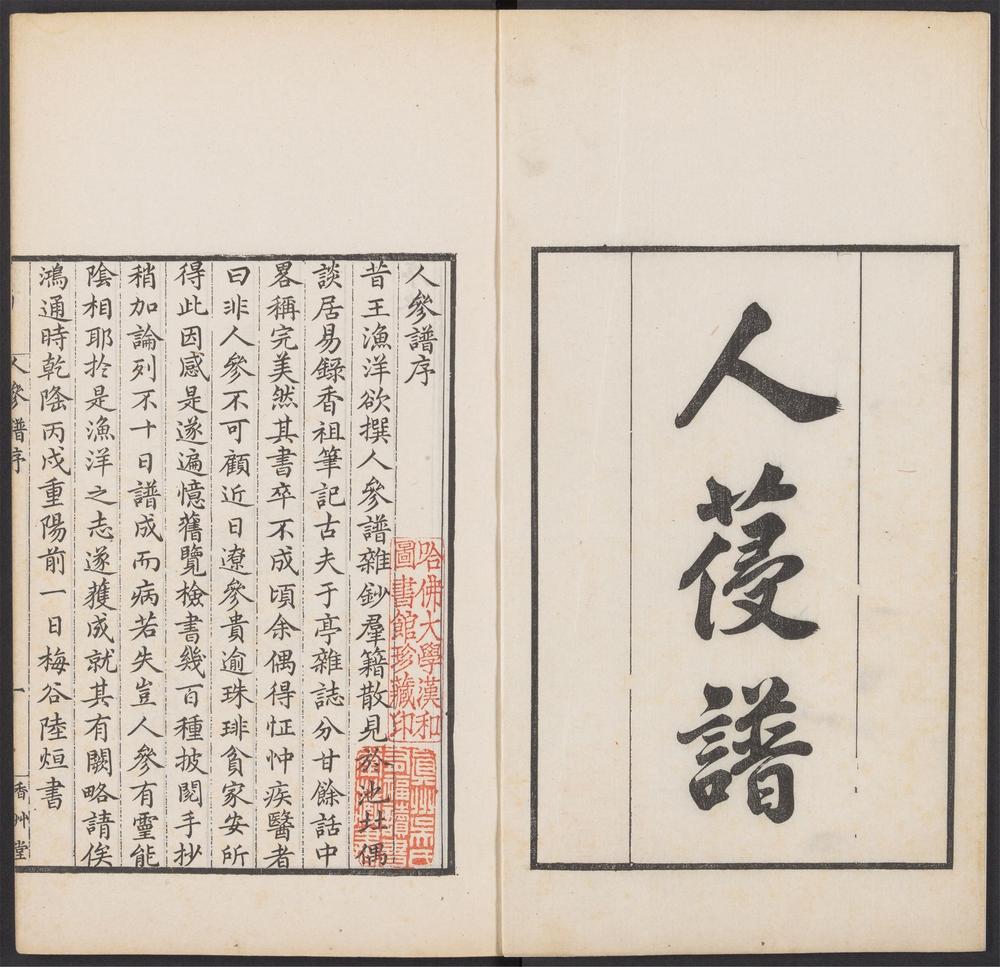 人葠譜
人參譜序
昔王漁洋欲撰人參譜雜鈔羣籍散見於池北偶
談居易錄香祖筆記古夫于亭雜誌分甘餘話中
畧稱完美然其書卒不成頃余偶得怔忡疾醫者
曰非人參不可顧近日遼參貴逾珠琲貧家安所
得此因感是遂遍憶舊覽檢書幾百種披閱手抄
稍加論列不十日譜成而病若失豈人參有靈能
陰相耶於是漁洋之志遂獲成就其有闕略請俟
鴻通時乾隆丙戌重陽前一日梅谷陸烜書
人參譜序
一
香艸堂
哈佛大學漢和
圖書館珍藏印